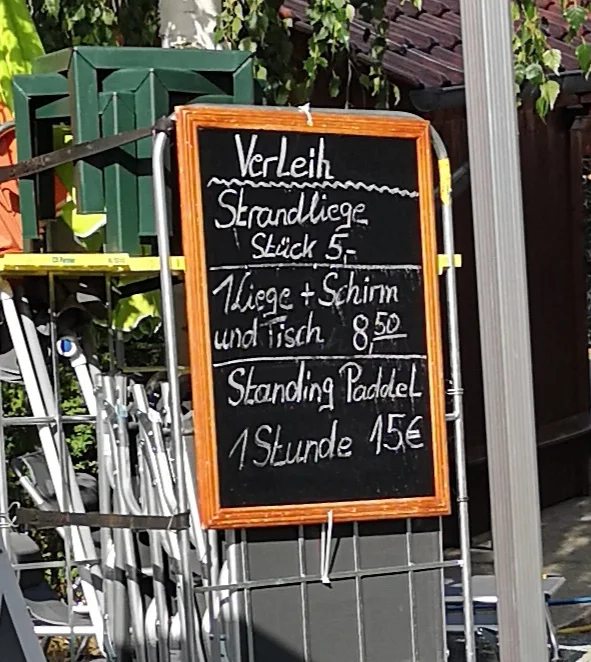 VerLeih
Strandliege
Stück 5,-
1 Liege + Schirm
und Tisch 8,50
Standing Paddel
1 Stunde 15€